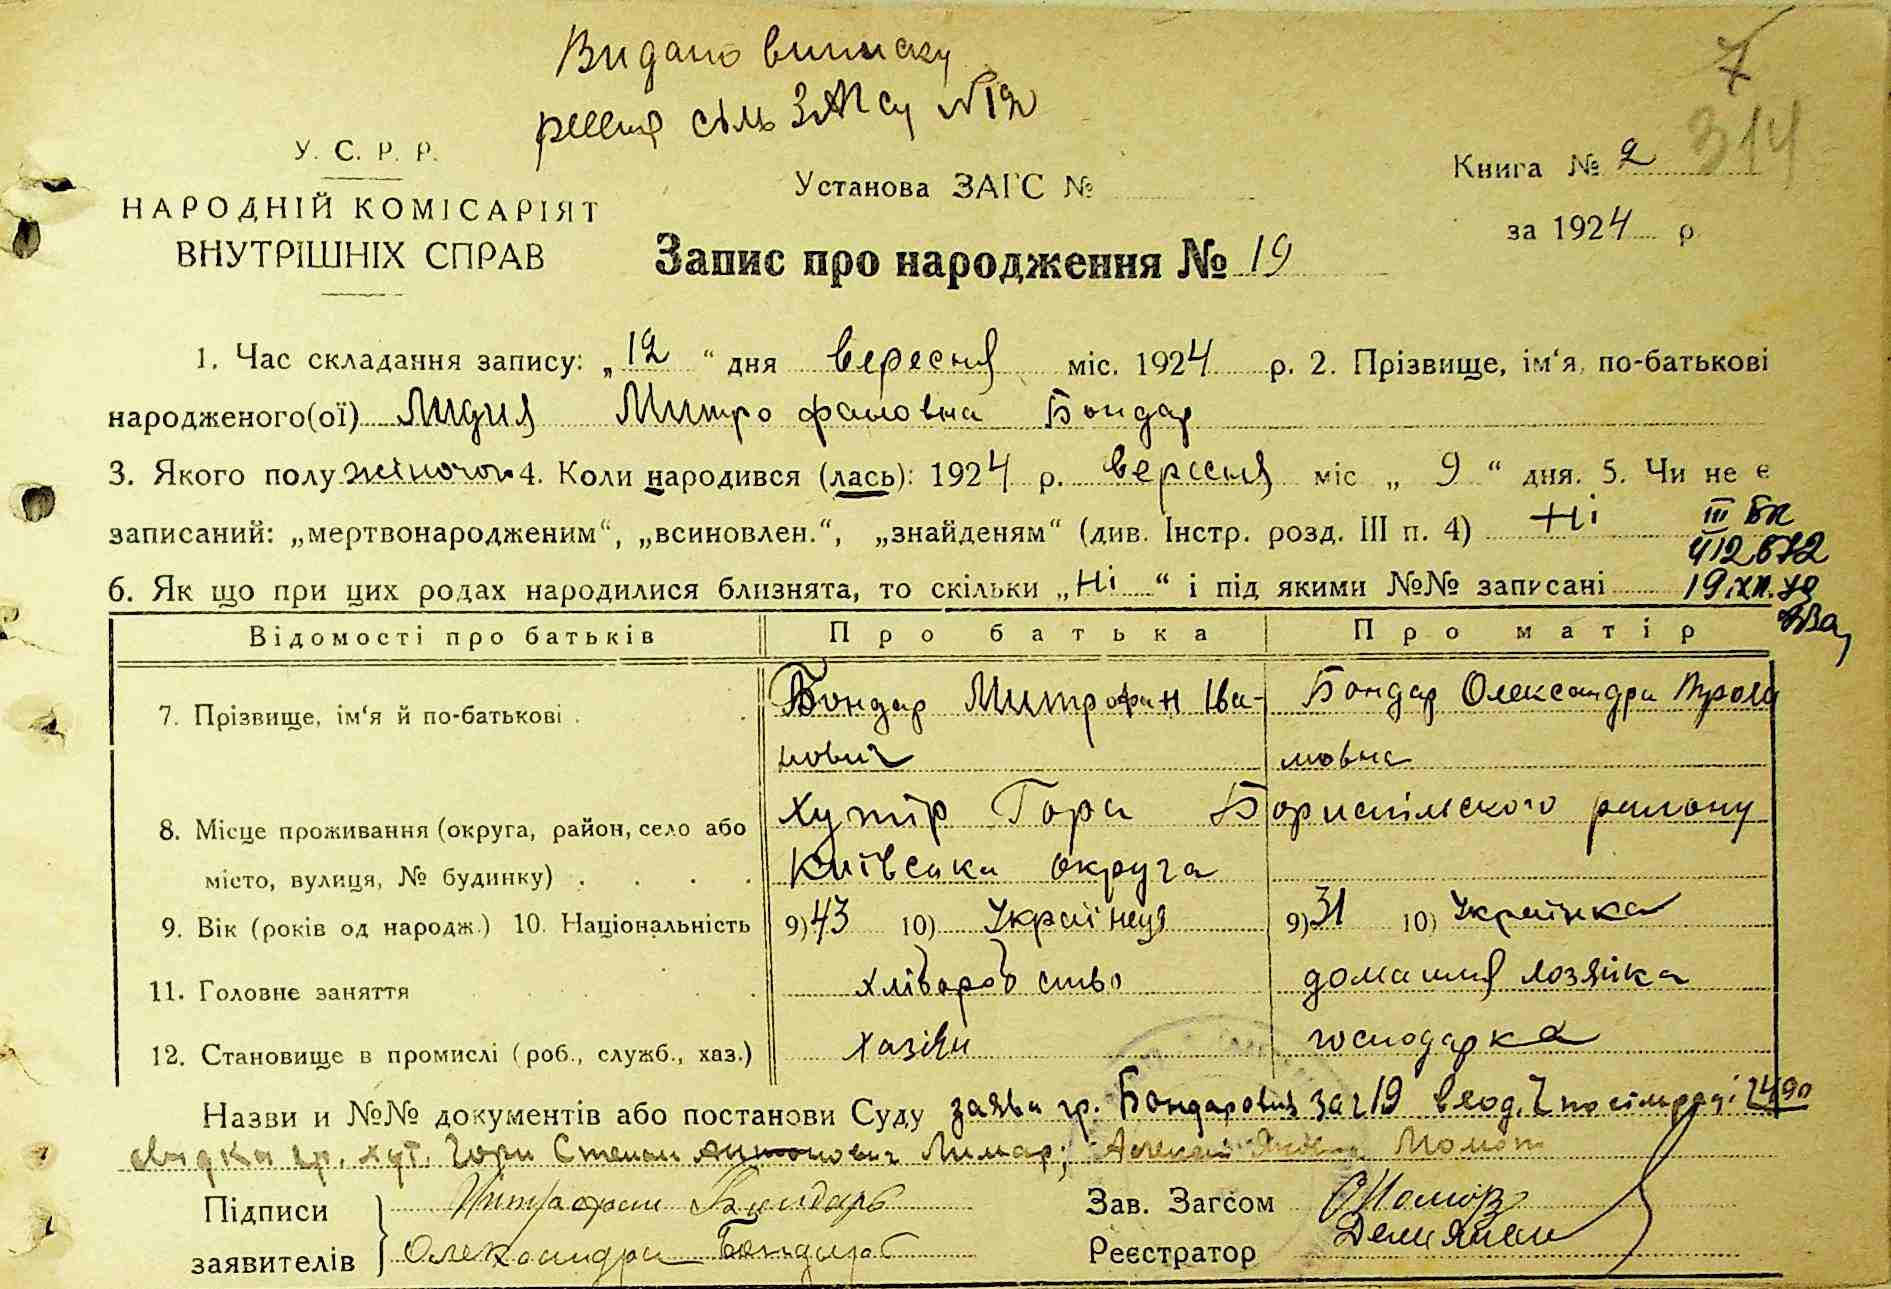 Видано виписку
сіль ЗАГСу №19
7
314
У. С. Р. Р.
НАРОДНІЙ КОМІСАРІЯТ
ВНУТРІШНІХ СПРАВ
Установа ЗАГС №
Книга № 2
за 1924 р
Запис про народження № 19
1. Час складання запису: „ 12 “ дня вересня міс. 1924 р. 2. Прізвище, ім‘я, по-батькові
народженого(ої) Лидия Митрофановна Бондар
3. Якого полу жіночог 4. Коли народився (лась): 1924 р. вересня міс „ 9 “ дня. 5. Чи не є
записаний: „мертвонародженим“, „всиновлен.“, „знайденям“ (див. Інстр. розд. III п. 4) Ні
III БК
412672
6. Як що при цих родах народилися близнята, то скільки „ Ні “ і під якими №№ записані
Відомості про батьків Про батька Про матір
7. Прізвище, ім‘я й по-батькові . Бондар Митрофан Іва-
нович
Бондар Олександра
мовна
8. Місце проживання (округа, район, село або
місто, вулиця, № будинку) . . . .
хутір Гора Бориспільского району
Київська округа
9. Вік (років од народж.) 10. Національність 9) 43 10) Українець 9) 31 10) Українка
11. Головне заняття хліборобство домашня хозяйка
12. Становище в промислі (роб., служб., хаз.) хазяїн господарка
Назви и №№ документів або постанови Суду заява гр. за № 19
гр. хут. Гори Степан Антонович Лимар; Момот
Підписи
заявителів
Митрофан Бондарь
Олександра Бондар
Зав. Загсом
Реєстратор